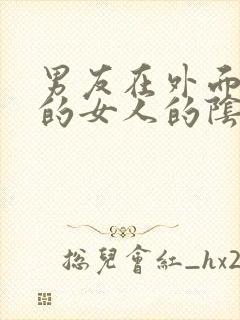 男友在外面
的女人的陰
总兒會紅_hx2